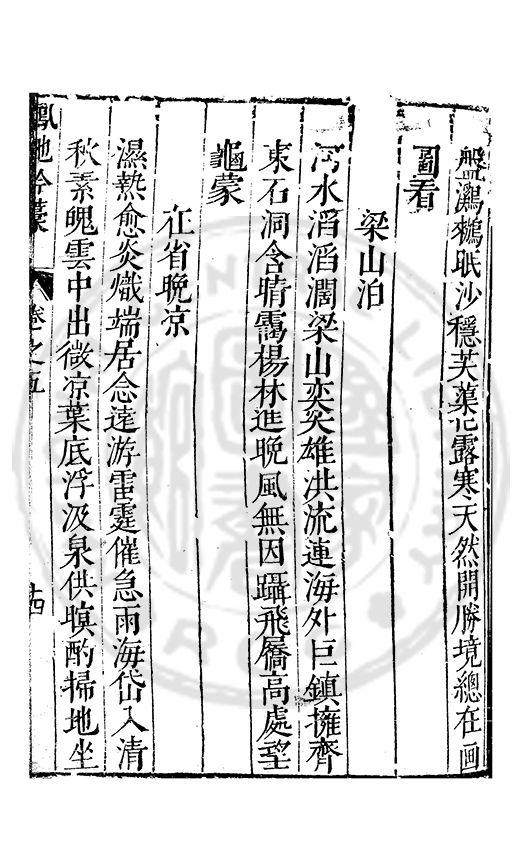 盤濺鵜眠沙穩芙蕖花露寒天然開勝境總在画
圖看
梁山泊
河水滔滔濶梁山奕奕雄洪流連海外巨鎮擁齊
東石洞含晴靄楊林進晚風無因躡飛屩高處望
龜蒙
在省晚凉
濕熱愈炎熾端居念遠游雷霆催急雨海岱入清
秋素魄雲中出微凉葉底浮汲泉供暝酌掃地坐
鳳池吟藁
卷之五
十四